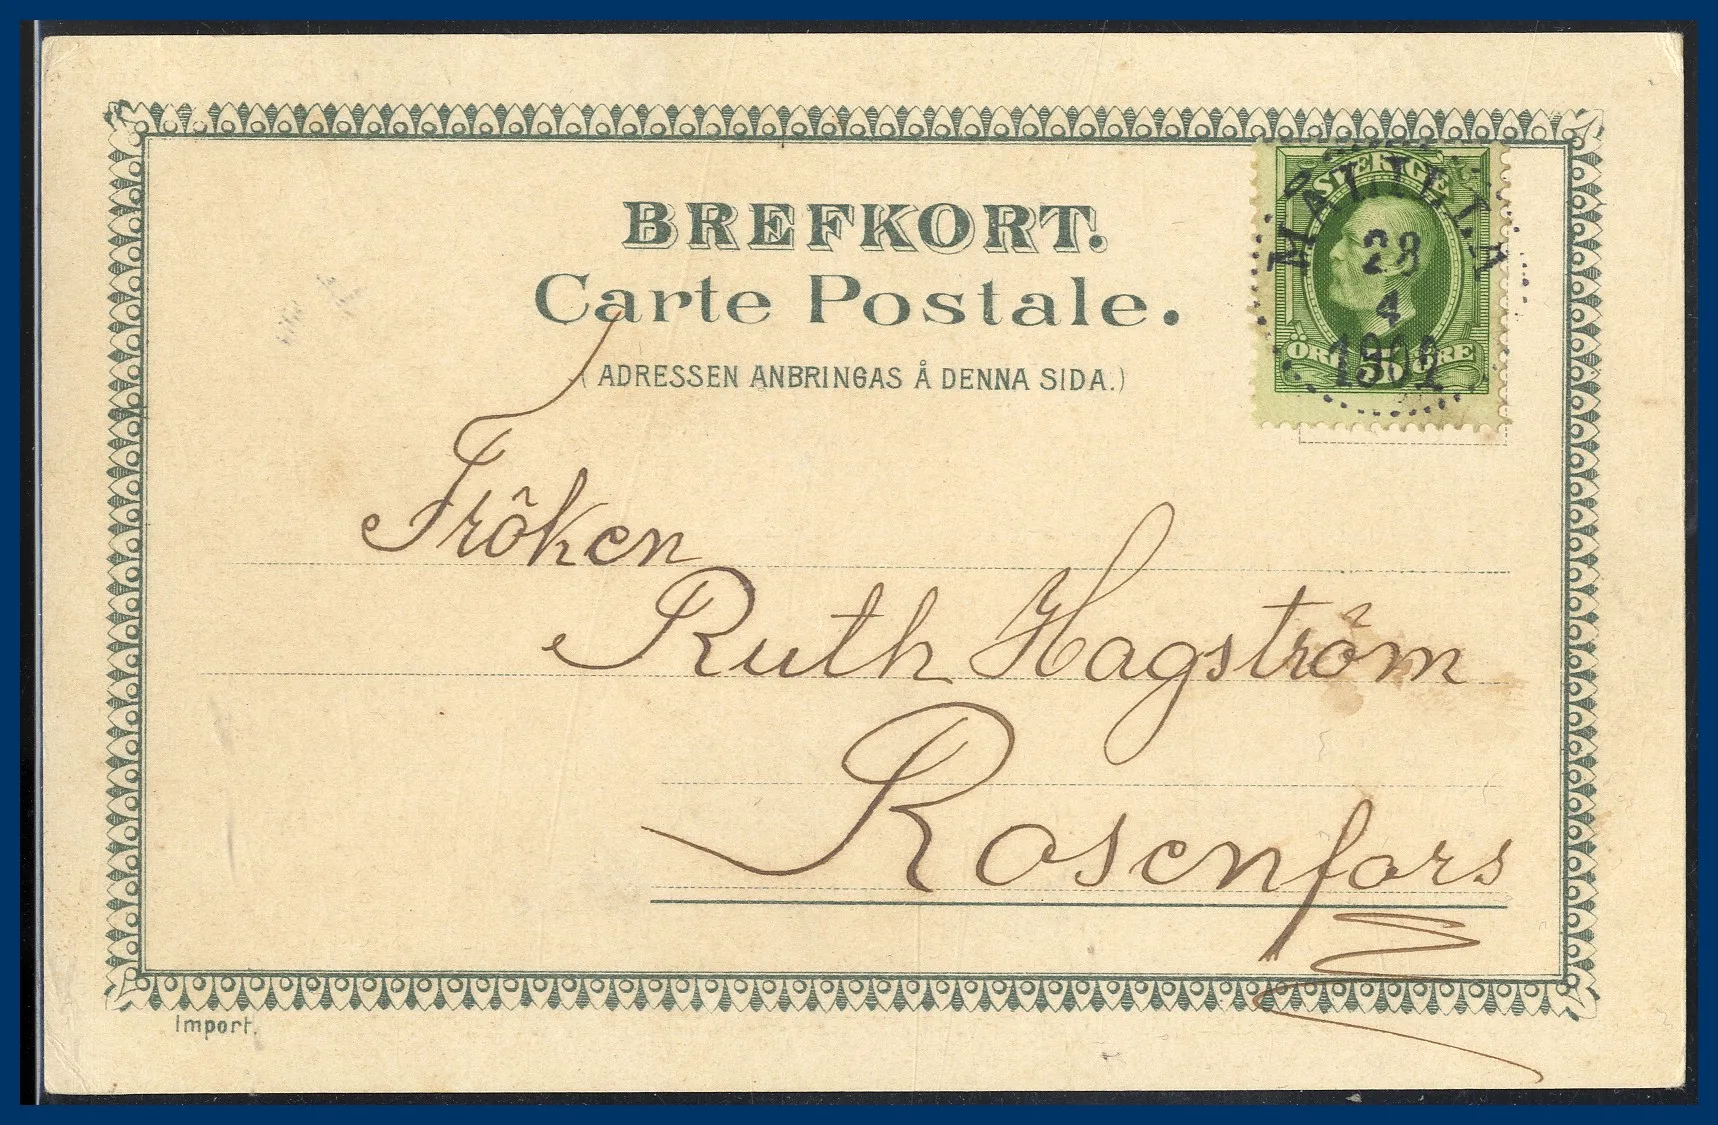 BREFKORT.
Carte Postale.
(ADRESSEN ANBRINGAS Å DENNA SIDA.)
SVERIGE
28
4
1902
ÖRE 5 ÖRE
Fröken
Ruth Hagström
Rosenfors
Import.